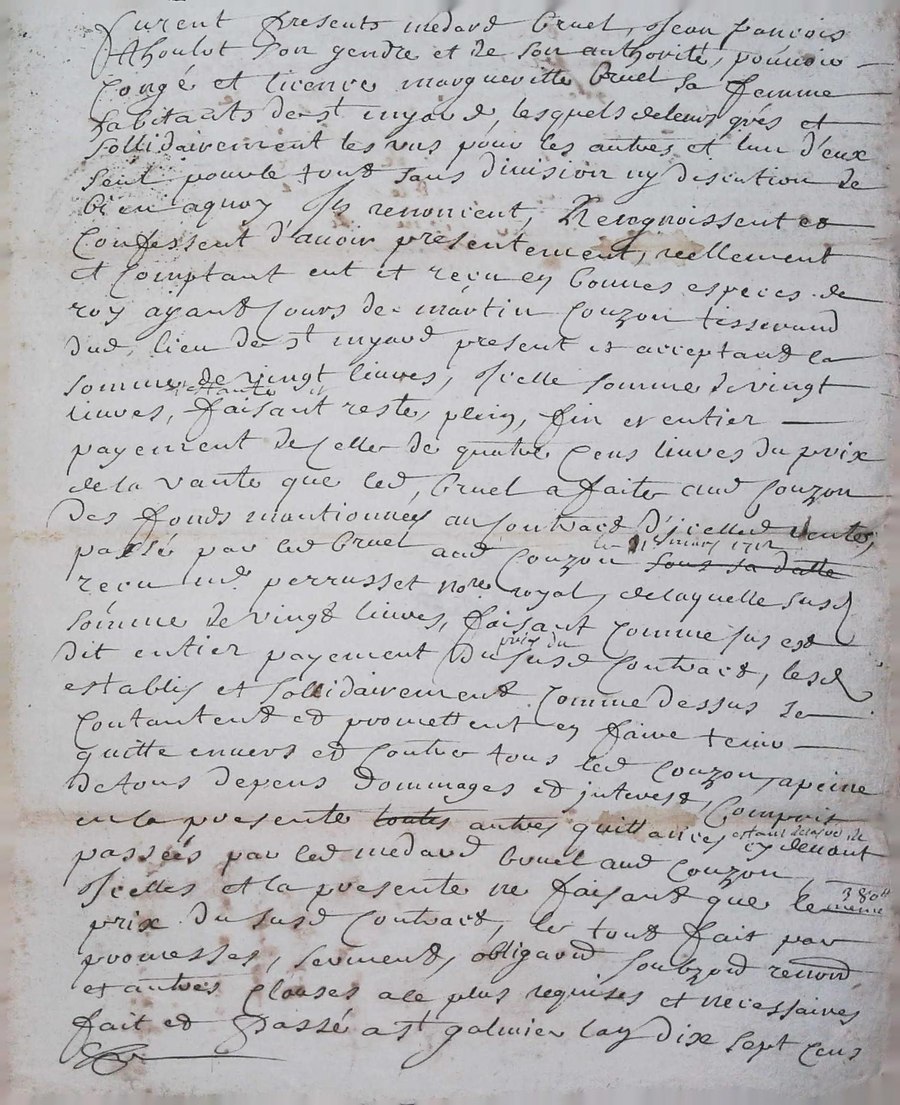 furent presents medard bruel, Jean francois
thoulot son gendre et de son authorité, pouvoir
congé et licence margueritte bruel sa femme
habitants de st myard, lesquels de leurs grés et
sollidairement les uns pour les autres et lun d'eux
seul pour le tout sans division ny discution de
bien a quoy ils renoncent, Recognoissent et
Confessent d'avoir presentement, reellement
et Comptant eut et reçu en bonnes especes de
roy ayant Cours de martin Couzon tisserand
dud. lieu de st myard present et acceptant la
somme de vingt livres, Icelle somme de vingt
livres, faisant reste, plein, fin et entier
payement de Celle de quatre Cens livres du prix
de la vante que led. bruel a faite aud Couzon
des fonds mantionnes au Contract d'icelled vente,
passé par led bruel aud Couzon le mars 1712 sous sa datte
reçu me perrusset nore royal, de laquelle susd
somme de vingt livres, faisant comme sus est
dit entier payement prix du Dususd Contract, lesd
establis et sollidairement Comme dessus se
Contantent et promettent en faire tenir
quitte envers et Contre tous led Couzon, a peine
de tous depens dommages et interest, Compris
en la presente toutes autres quittances
passées par led medard bruel aud Couzon, cy devant
Icelles et la presente ne faisant que le meme 380ll
prix Dususd Contract, le tout fait par
promesses, serment, obligaond soubzond renond
et autres Clauses a le plus requises et necessaires
fait et Passé a st galmier lan dix sept Cens